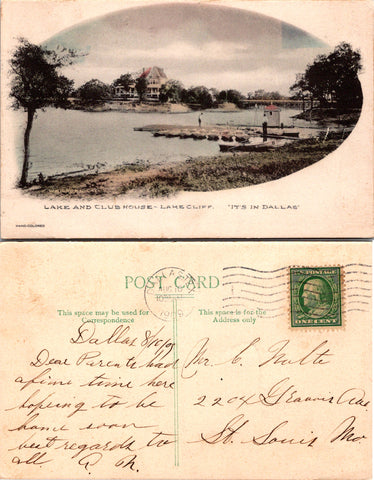 LAKE AND CLUB HOUSE - LAKE CLIFF. "IT'S IN DALLAS"
HAND-COLORED
POST CARD
This space may be used for
Correspondence
This space is for the
Address only
DALLAS
AUG 10
1909
U.S. POSTAGE
ONE CENT
Dallas 8/10/09
Dear Parents had
a fine time here
hoping to be
home soon
best regards to
all
Mr. C. Nolte
2204 Ave
St. Louis Mo.